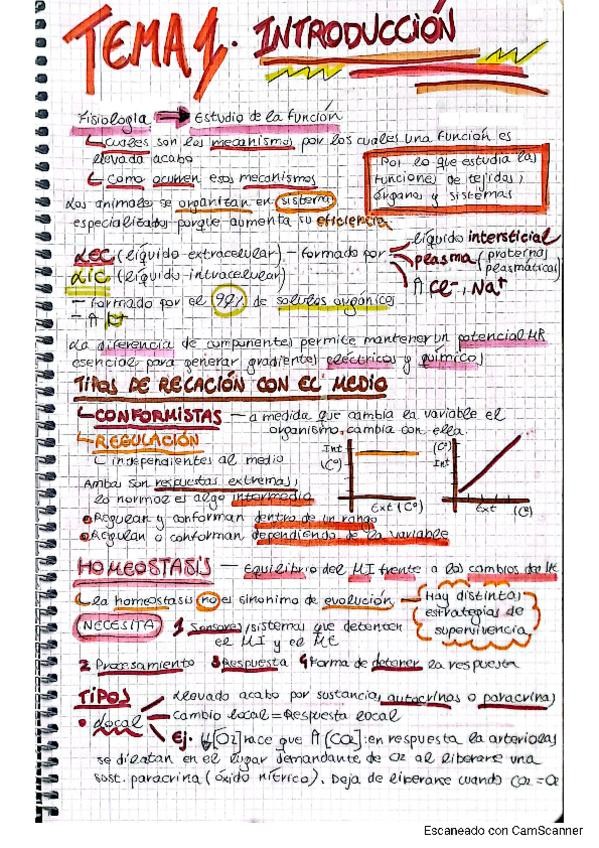 TEMA 1. INTRODUCCIÓN
Fisiología → Estudio de la función
cuales son los mecanismos por los cuales una función es
llevada acabo
Cómo ocurren esos mecanismos
Por lo que estudia las
funciones de tejidos,
órganos y sistemas
Los animales se organizan en sistema
especializados porque aumenta su eficiencia
LEC (líquido extracelular).- Formado por
líquido intersticial
plasma (proteínas
plasmáticas)
↑ Cl-, Na+
LIC (líquido intracelular)
- Formado por el 99% de solutos orgánicos
- ↑ K+
La diferencia de componentes permite mantener un potencial MR
esencial para generar gradientes eléctricos y químicos
TIPOS DE RELACIÓN CON EL MEDIO
CONFORMISTAS - a medida que cambia la variable el
organismo, cambia con ella.
REGULACIÓN
independientes al medio
Ambas son respuestas extremas,
lo normal es algo intermedio
Regulan y conforman dentro de un rango
Regulan o conforman dependiendo de la variable
Int
(Cº)
Ext (Cº)
(Cº)
Int
Ext (Cº)
HOMEOSTASIS - Equilibrio del MI frente a los cambios del ME
la homeostasis no es sinonimo de evolución
Hay distintas
estrategias de
supervivencia
NECESITA 1 Sensores, sistemas que detecten
el MI y el ME
2 Procesamiento 3 Respuesta 4 Forma de detener la respuesta
TIPOS
• Local
Llevado acabo por sustancias autocrinas o paracrinas
cambio local = Respuesta local
Ej. ↓[O2] hace que ↑[CO2]: en respuesta la arteriolas
se dilatan en el lugar demandante de O2 al liberarse una
sust. paracrina (óxido nítrico). Deja de liberarse cuando CO2 = O2
Escaneado con CamScanner